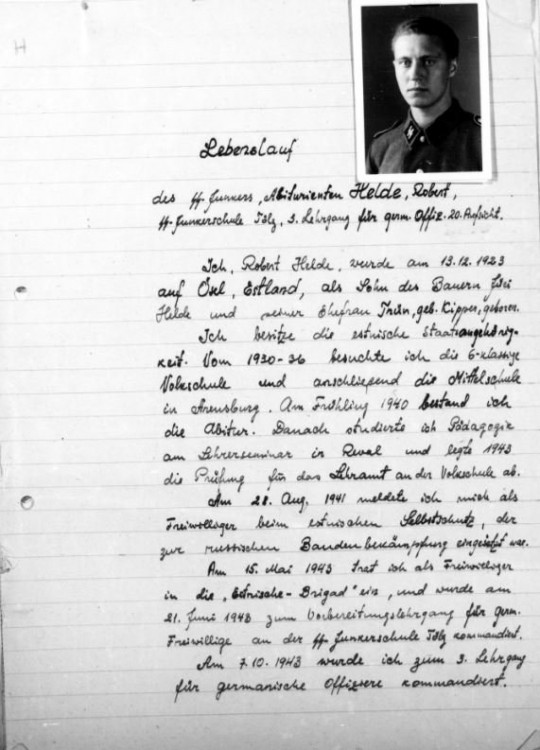 H
Lebenslauf
des SS-Junkers, Abiturienten Helde, Robert,
SS-Junkerschule Tölz, 3. Lehrgang für germ. Offiz. 20. Aufsicht.
Ich, Robert Helde, wurde am 13.12.1923
auf Ösel, Estland, als Sohn des Bauern
Helde und seiner Ehefrau Triin, geb. Kipper, geboren.
Ich besitze die estnische Staatsangehörig-
keit. Vom 1930-36 besuchte ich die 6-klassige
Volkschule und anschliesend die Mittelschule
in Arensburg. Am Frühling 1940 bestand ich
die Abitur. Danach studierte ich Pädagogik
am Lehrerseminar in Reval und legte 1943
die Prüfung für das Lehramt an der Volkschule ab.
Am 28. Aug. 1941 meldete ich mich als
Freiwilliger beim estnischen Selbstschutz, der
zur russischen Bandenbekämpfung eingesetzt war.
Am 15. Mai 1943 trat ich als Freiwilliger
in die „Estnische-Brigad" ein, und wurde am
21. Juni 1943 zum Vorbereitungslehrgang für germ.
Freiwillige an der SS-Junkerschule Tölz kommandiert.
Am 7.10.1943 wurde ich zum 3. Lehrgang
für germanische Offiziere kommandiert.